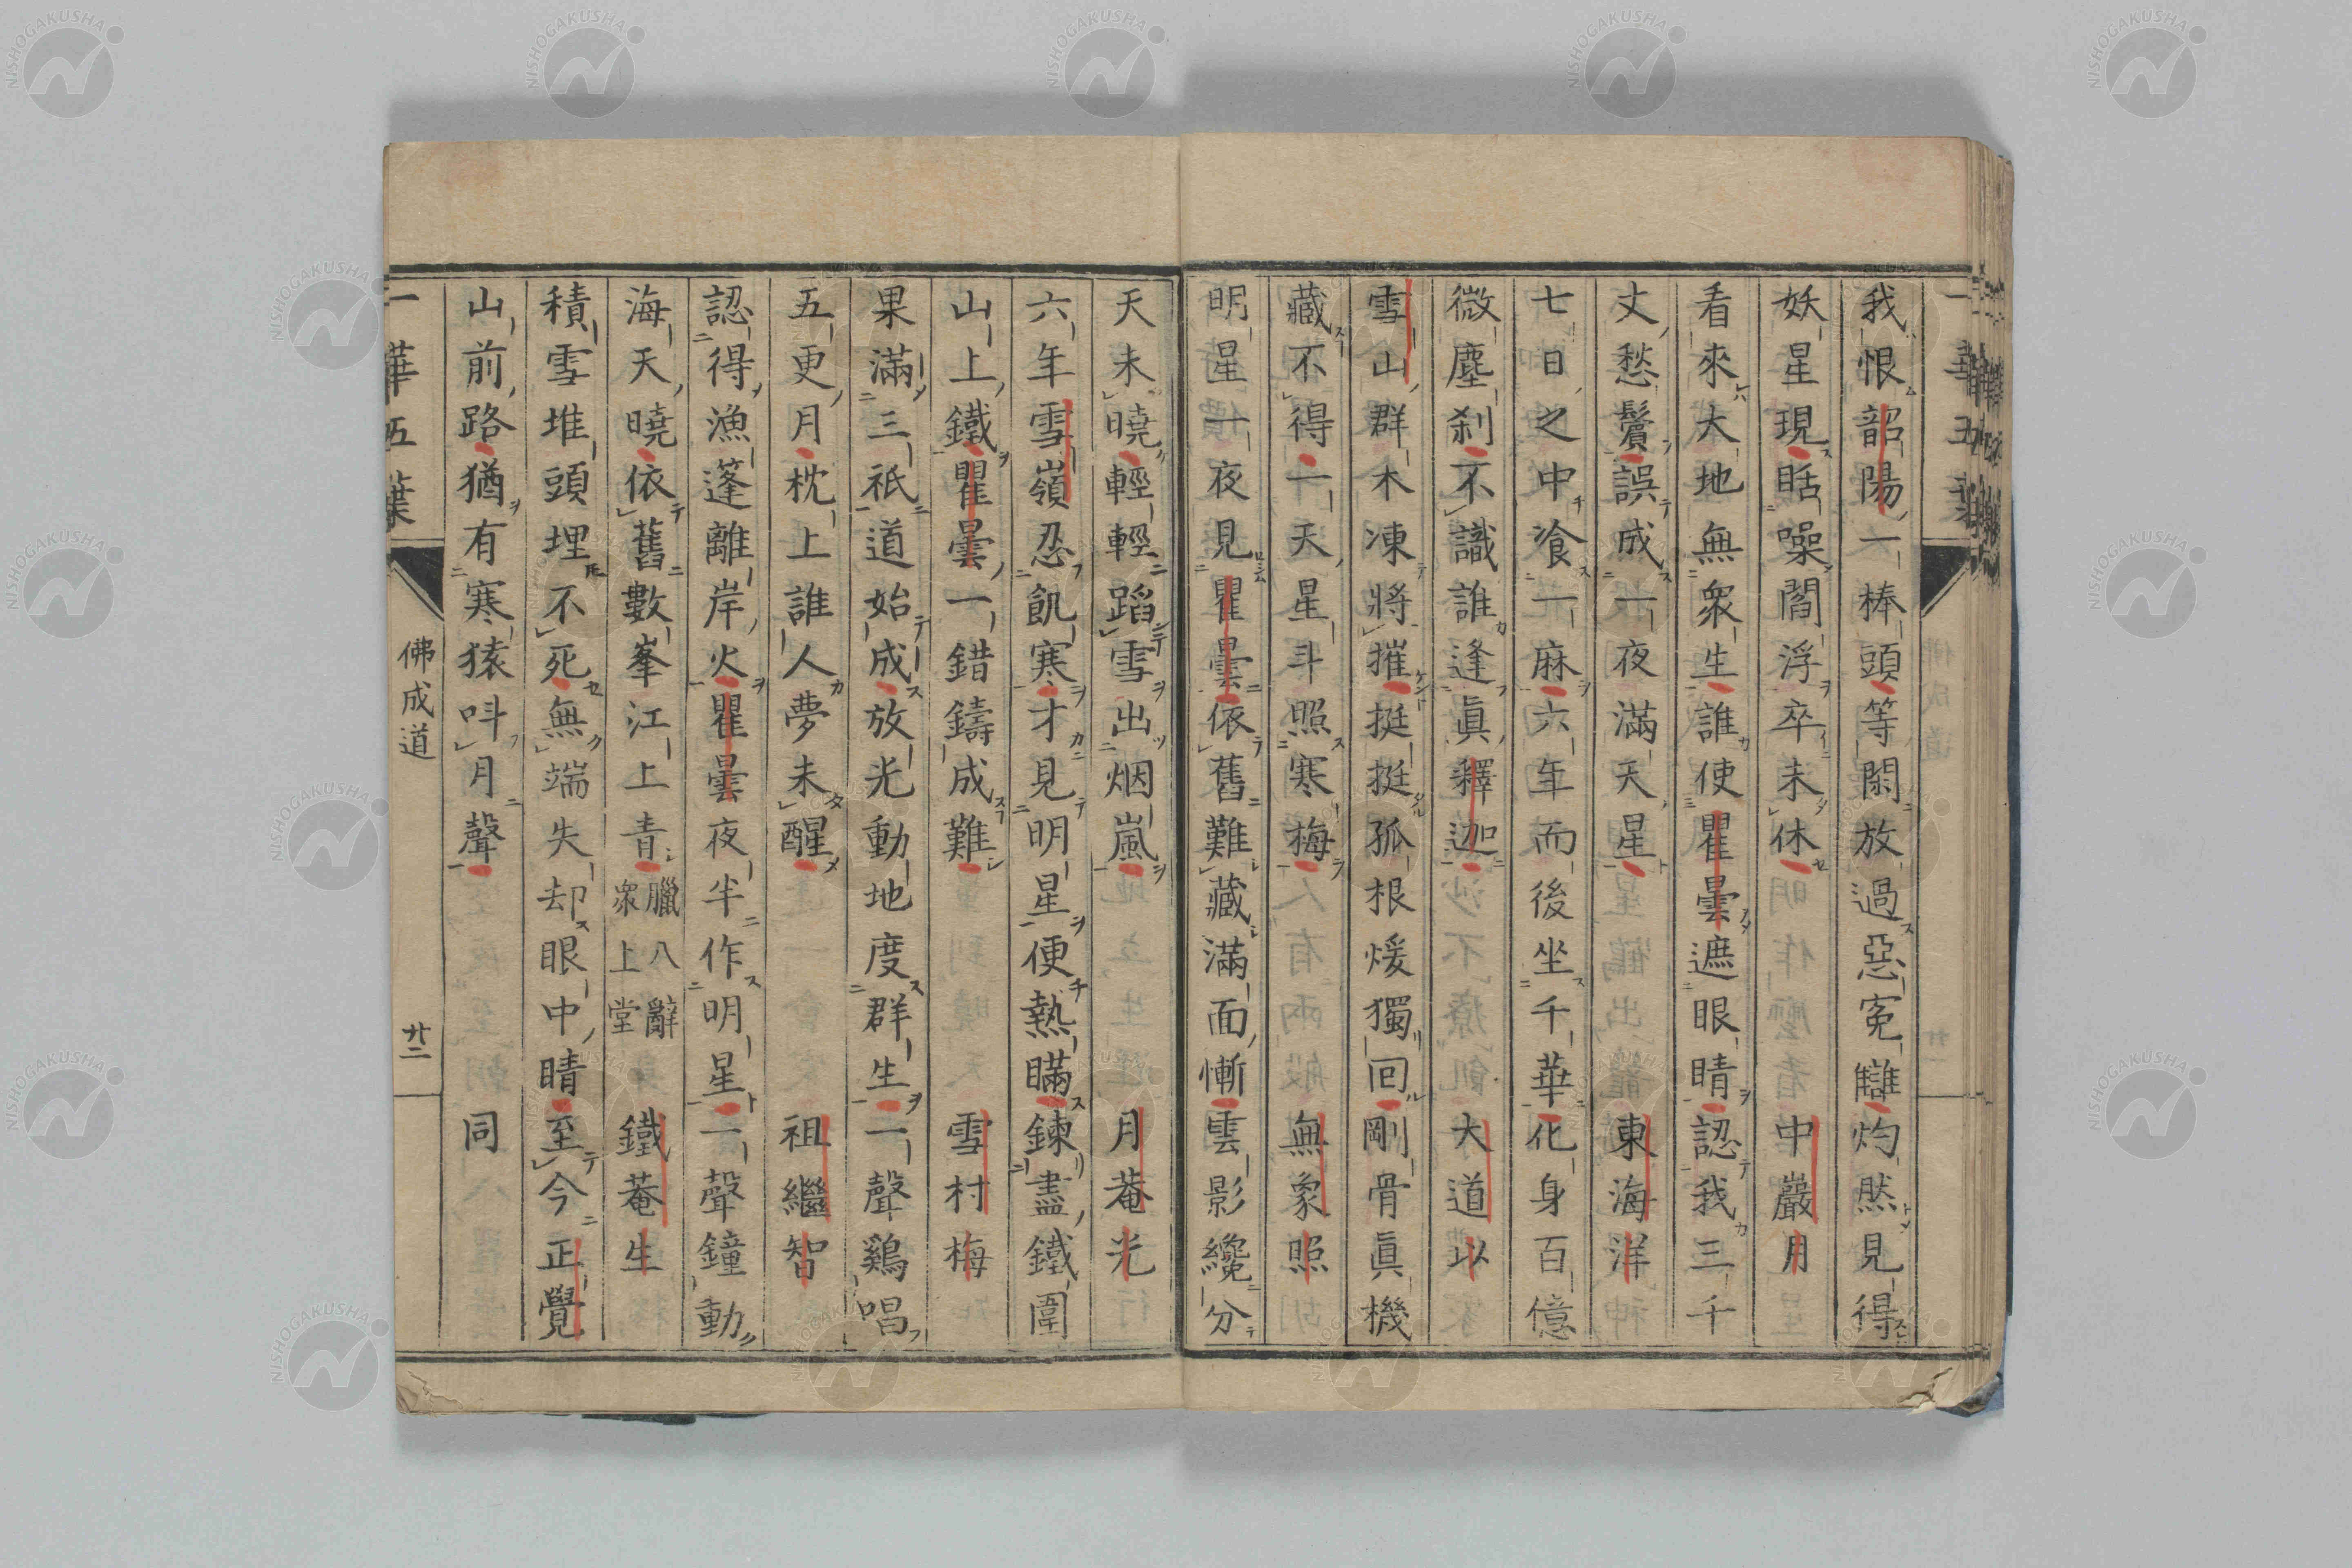 我恨韶陽一棒頭等閑放過惡冤讎灼然見得
妖星現聒噪閻浮卒未休 中巖月
看來大地無衆生誰使瞿曇遮眼睛認我三千
丈愁鬢誤成一夜滿天星 東海洋
七日之中飡一麻六年而後坐千華化身百億
微塵刹不識誰逢眞釋迦 大道以
雪山群木凍將摧挺挺孤根煖獨回剛骨眞機
藏不得一天星斗照寒梅 無象照
明星一夜見瞿曇依舊難藏滿面慚雲影纔分
天未曉輕輕蹈雪出烟嵐 月菴光
六年雪嶺忍飢寒才見明星便熱瞞鍊盡鐵圍
山上鐵瞿曇一錯鑄成難 雪村梅
果滿三祇道始成放光動地度群生一聲鷄唱
五更月枕上誰人夢未醒 祖繼智
認得漁蓬離岸火瞿曇夜半作明星一聲鐘動
海天曉依舊數峯江上青 臘八辭衆上堂 鐵菴生
積雪堆頭埋不死無端失却眼中睛至今正覺
山前路猶有寒猿呌月聲 同
一華五葉
佛成道
廿二
NISHOGAKUSHA